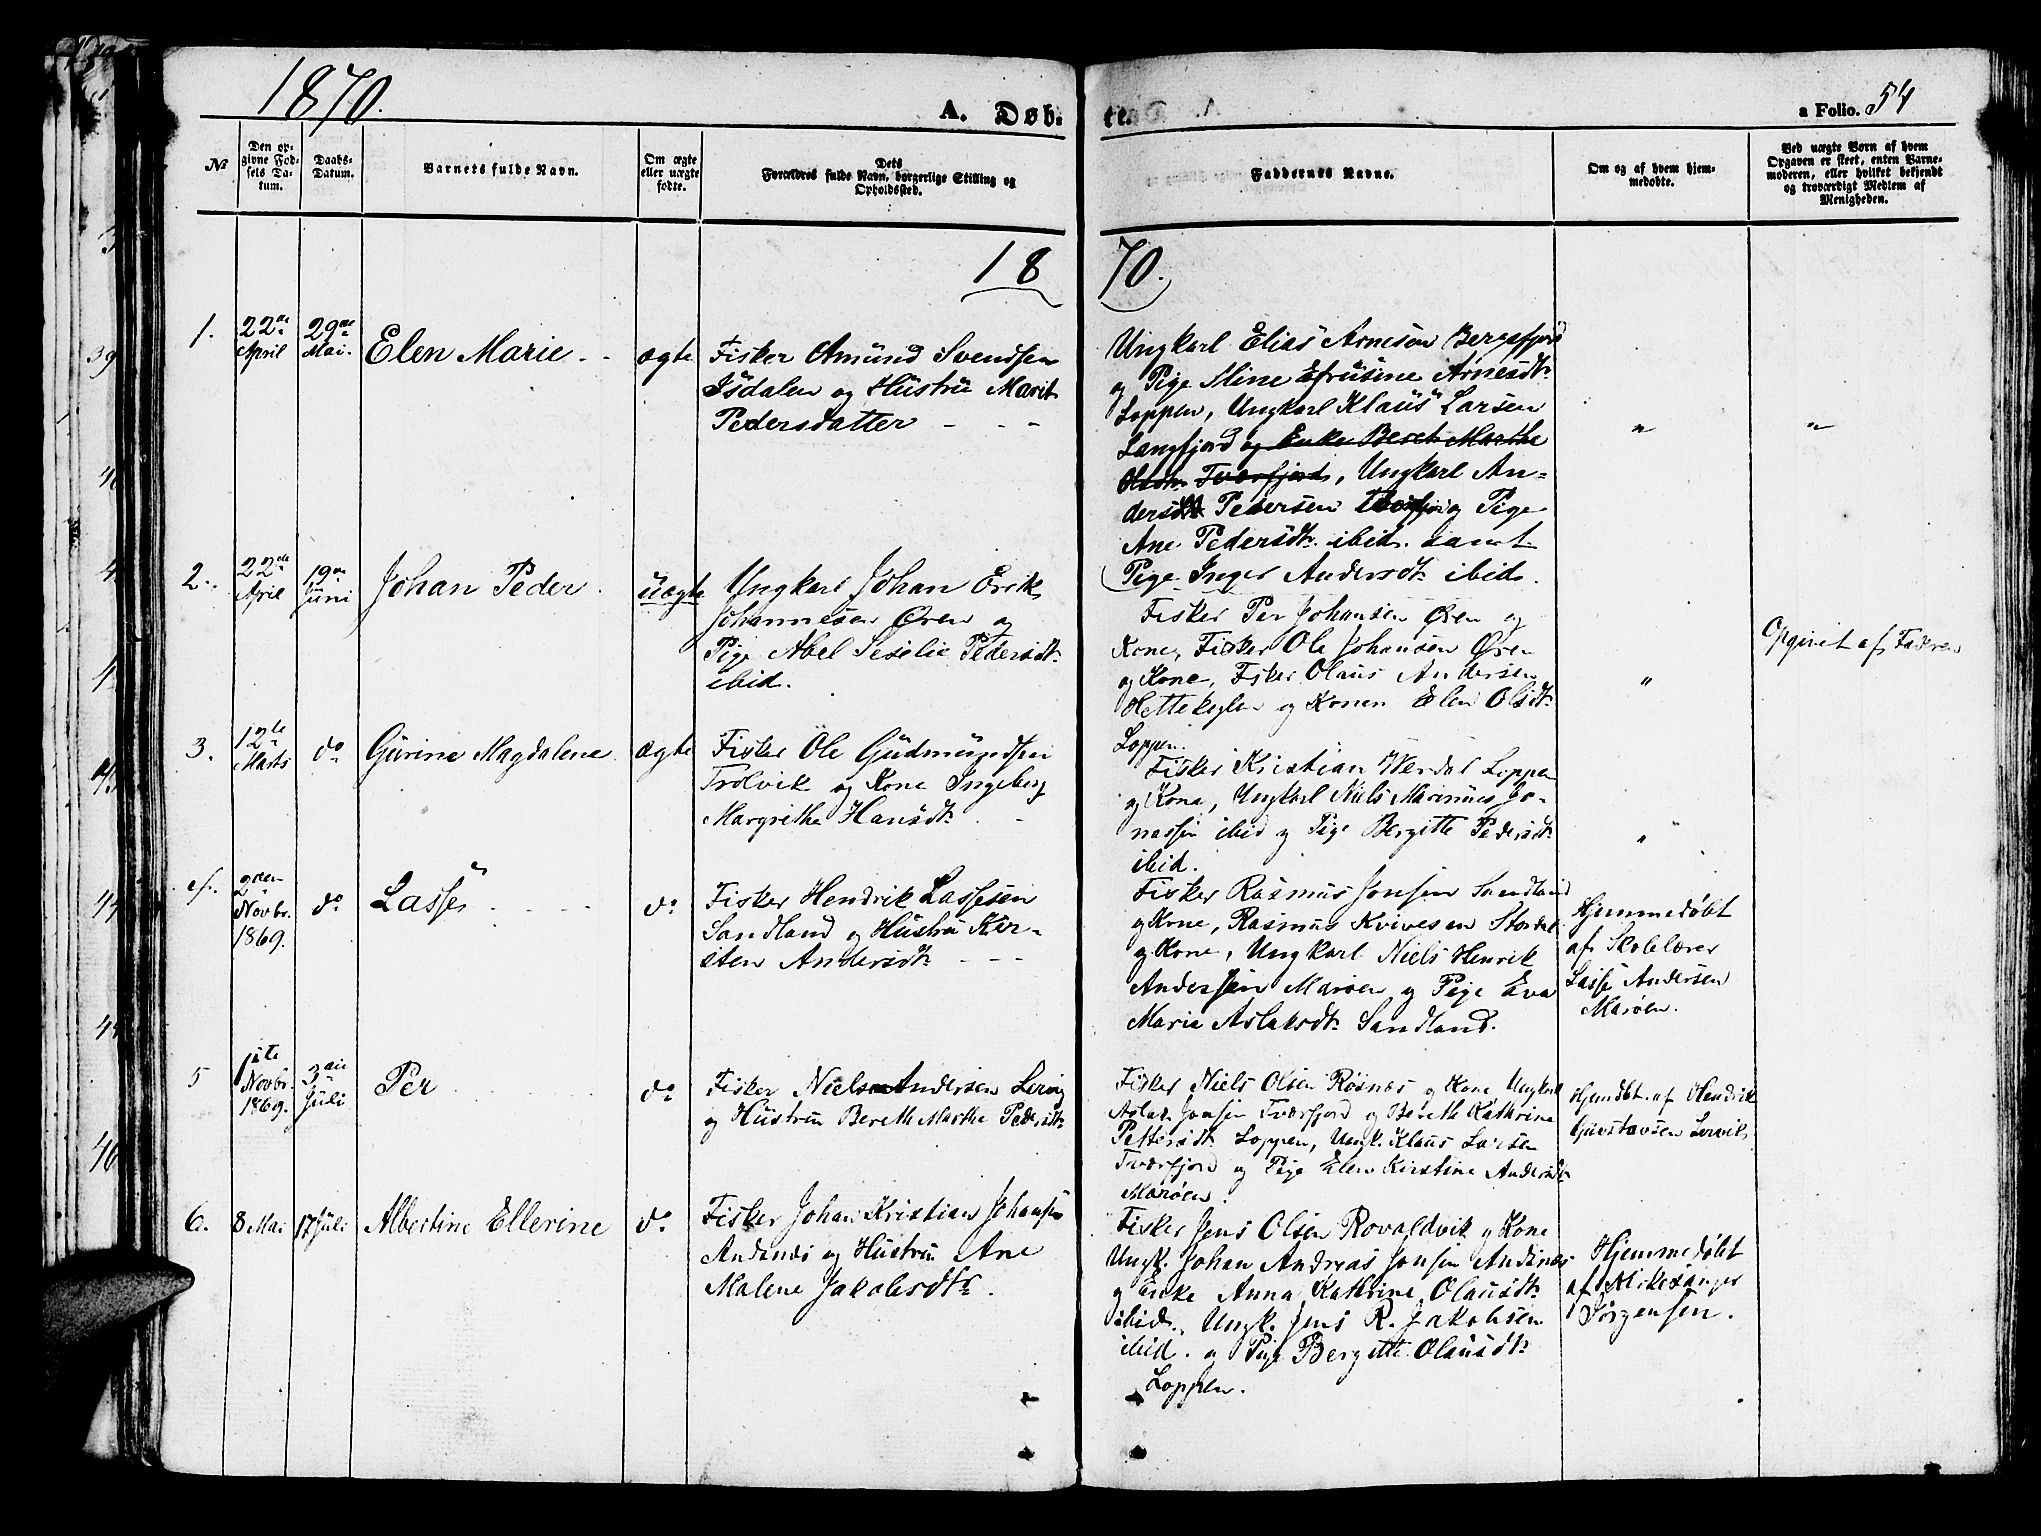 1870.
A. Døb-
te.
a Folio. 54
№
Den op-
givne Fød-
sels Da-
tum.
Daabs-
Datum.
Barnets fulde Navn.
Om ægte
eller uægte
fødte.
Dets
Forældres fulde Navn, borgerlige Stilling og
Opholdssted.
Faddernes Navne.
Om og af hvem hjem-
medøbte.
Ved uægte Børn af hvem
Opgaven er skeet, enten Barne-
moderen, eller hvilket bekjendt
og troværdigt Medlem af
Menigheden.
1870.
1.
22de
April
29de
Mai.
Elen Marie
ægte
Fisker Amund Svendsen
Isdalen og Hustru Marit
Pedersdatter
Ungkarl Elias Arnesen Bergsfjord
og Pige Mine Efrusine Arnesdtr
Loppen, Ungkarl Klaus Larsen
Langfjord og Enke Beret Marthe
Olsdtr Tverfjord, Ungkarl An-
ders Pedersen og Pige
Ane Pedersdtr. ibid. samt
Pige Inger Andersdtr ibid.
"
"
2.
22de
April
19de
Juni
Johan Peder.
uægte
Ungkarl Johan Erik
Johannesen Øren og
Pige Abel Seselie Pedersdtr
ibid.
Fisker Per Johansen Øren og
Kone, Fisker Ole Johansen Øren
og Kone, Fisker Olaus Andersen
og Konen Elen Olsdtr
Loppen.
"
Opgivet af Faderen
3.
12te
Marts
do
Gurine Magdalene
ægte
Fisker Ole Gudmundsen
Trolvik og Kone Ingeberg
Margrethe Hansdtr.
Fisker Kristian Werdal Loppen
og Kone, Ungkarl Niels Marinius Jo-
nassen ibid og Pige Bergitte Pedersdtr
ibid.
"
4.
2den
Novbr.
1869.
do
Lasse
do
Fisker Hendrik Lassesen
Sandland og Hustru Kir-
sten Andersdtr
Fisker Rasmus Jonsen Sandland
og Kone, Rasmus Kvivesen
og Kone, Ungkarl Niels Henrik
Andersen Marøen og Pige Eva
Maria Aslaksdtr Sandland.
Hjemmedøbt
af Skolelærer
Lasse Andersen
Marøen.
5
1ste
Novbr.
1869.
3die
Juli
Per
do
Fisker Niels Andersen Lervig
og Hustru Bereth Marthe Pedersdtr
Fisker Niels Olsen Røsnæs og Kone Ungkarl
Aslak Jonsen Tverfjord og Bereth Kathrine
Pettersdtr Loppen, Ungk. Klaus Larsen
Tverfjord og Pige Elen Kirstine Andersdtr
Marøen.
Hjemdbt. af Hendrik
Gustavsen Lervik
6.
8 Mai
17 Juli
Albertine Ellerine
do
Fisker Johan Kristian Johansen
Andsnæs og Hustru Ane
Malene Jakobsdtr.
Fisker Jens Olsen Rovaldvik og Kone
Ungk. Johan Andreas Jonsen Andsnæs
og Enke Anna Kathrine Olausdtr
ibid., Ungk. Jens R. Jakobsen
ibid. og Pige Bergitte Olausdtr
Loppen.
Hjemmedøbt
af Kirkesanger
Jørgensen.